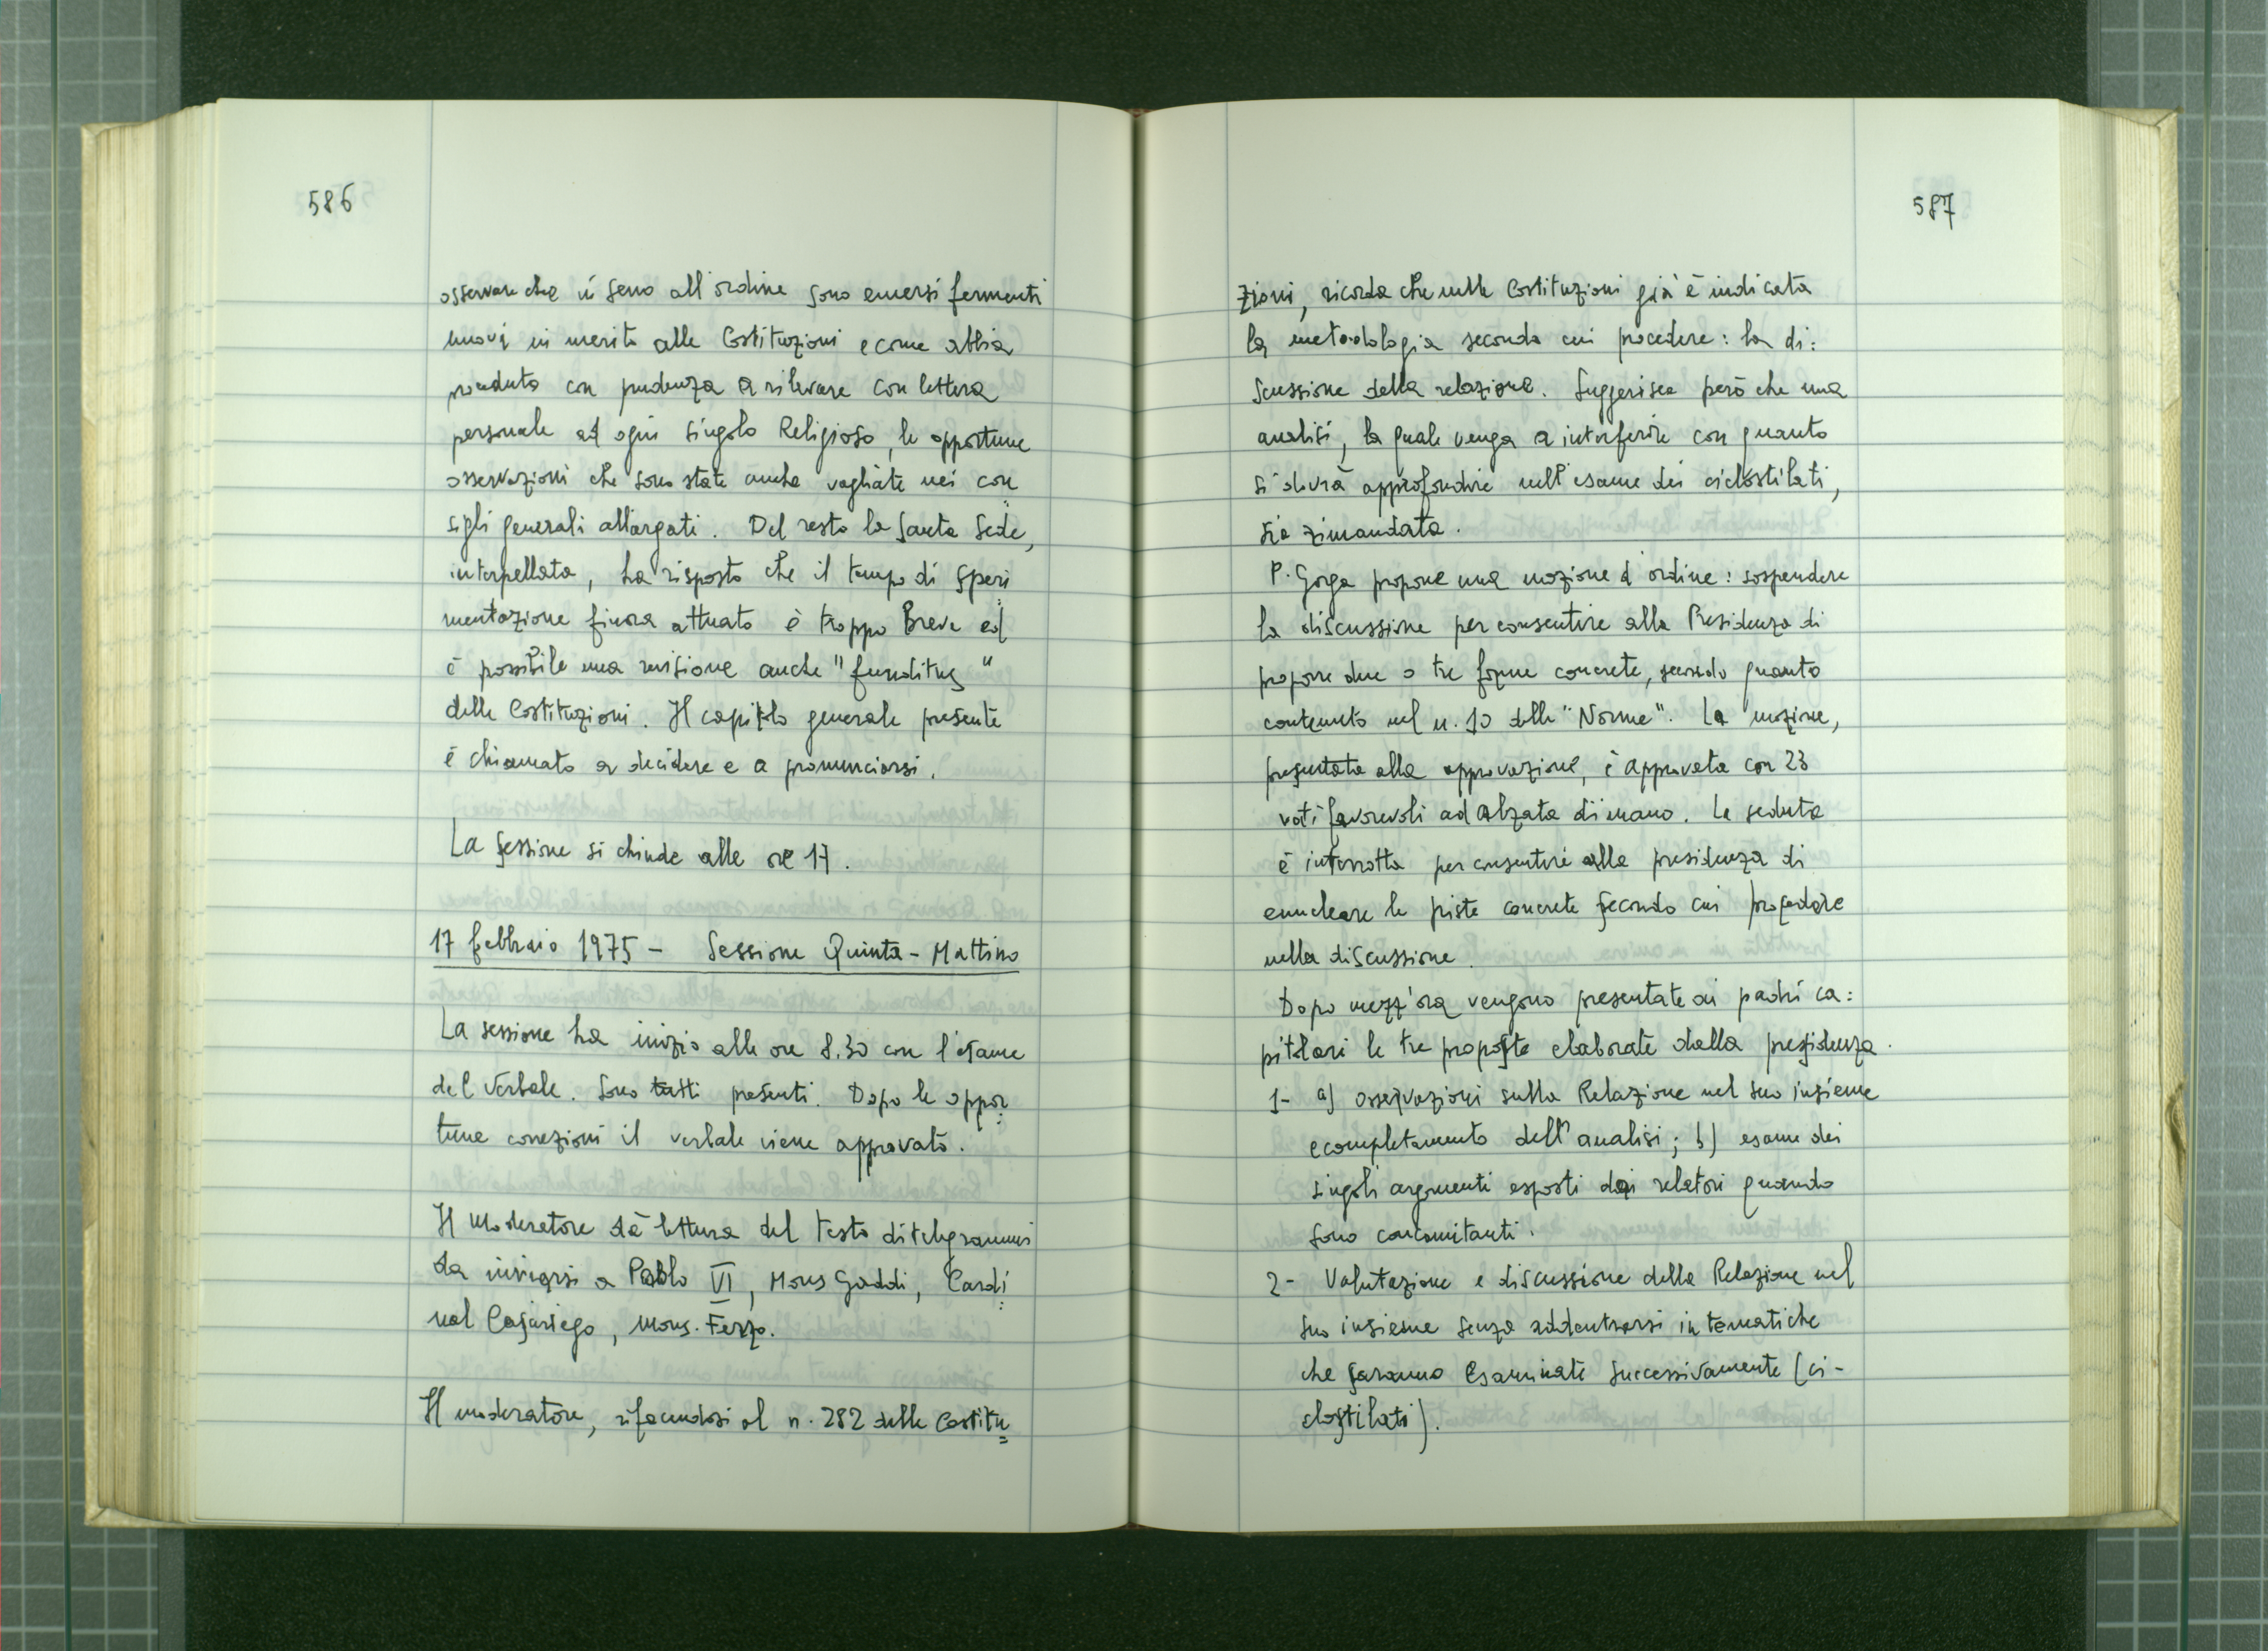 586
osservare che in seno all'ordine sono emersi fermenti
nuovi in merito alle Costituzioni e come abbia
provveduto con prudenza a rilevare con lettera
personale ad ogni singolo Religioso, le opportune
osservazioni che sono state anche vagliate nei con
sigli generali allargati. Del resto la Santa Sede,
interpellata, ha risposto che il tempo di speri
mentazione finora attuato è troppo Breve ed
è possibile una revisione anche "funditus"
delle Costituzioni. Il capitolo generale presente
è chiamato a decidere e a pronunciarsi.
La sessione si chiude alle ore 17.
17 febbraio 1975 - Sessione Quinta - Mattino
La sessione ha inizio alle ore 8.30 con l'esame
del Verbale. Sono tutti presenti. Dopo le oppor
tune correzioni il verbale viene approvato.
Il Moderatore dà lettura del testo di telegrammi
da inviarsi a Paolo VI, Mons Gaddi, Cardi
nal Casariego, Mons. Ferro.
Il moderatore, rifacendosi al n. 282 delle Costitu=
587
zioni, ricorda che nelle Costituzioni già è indicata
la metodologia secondo cui procedere: la di:
scussione della relazione. Suggerisce però che una
analisi, la quale venga a interferire con quanto
si dovrà approfondire nell'esame dei ciclostilati,
sia rimandata.
P. Gorga propone una mozione d'ordine: sospendere
la discussione per consentire alla Presidenza di
proporre due o tre forme concrete, secondo quanto
contenuto nel n. 10 delle "Norme". La mozione,
presentata alla approvazione, è approvata con 23
voti favorevoli ad alzata di mano. La seduta
è interrotta per consentire alla presidenza di
enucleare le piste concrete secondo cui procedere
nella discussione.
Dopo mezz'ora vengono presentate ai padri ca:
pitolari le tre proposte elaborate dalla presidenza.
1- a) osservazioni sulla Relazione nel suo insieme
e completamento dell'analisi; b) esame dei
singoli argomenti esposti dai relatori quando
sono concomitanti.
2- Valutazione e discussione della Relazione nel
suo insieme senza addentrarsi in tematiche
che saranno Esaminate successivamente (ci-
clostilati).